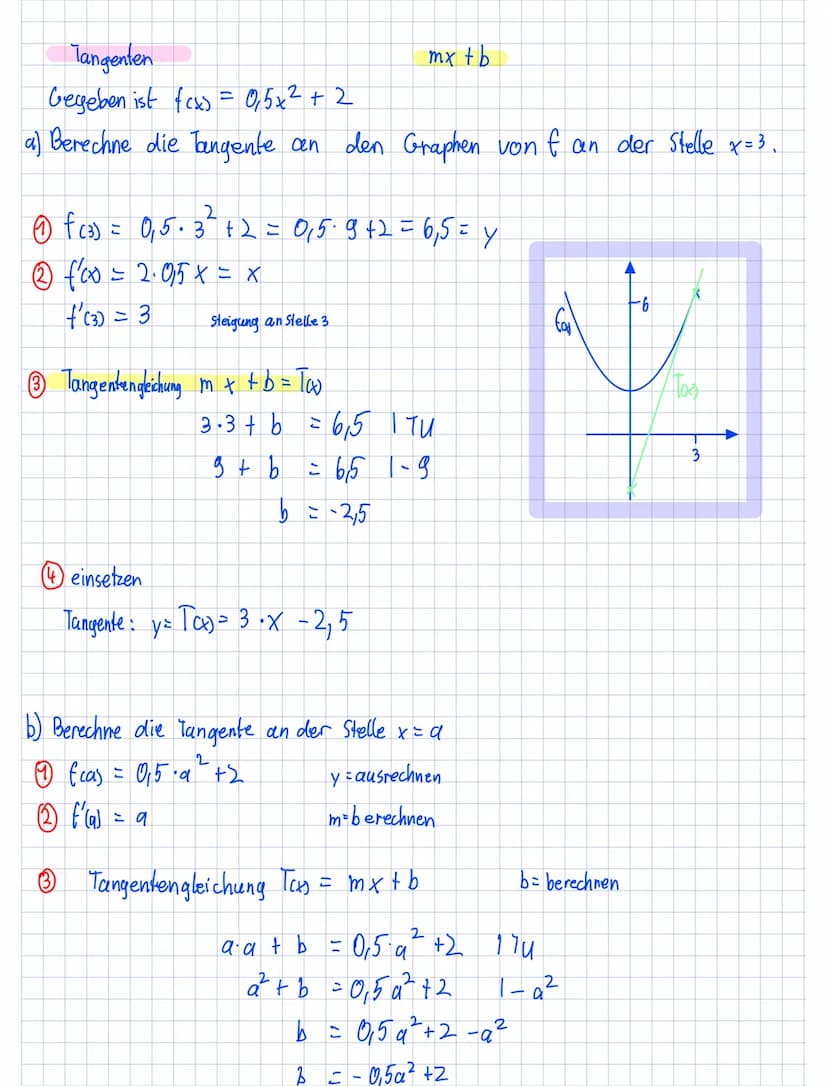 Tangenten
mx + b
Gegeben ist f(x) = 0,5x² + 2
a) Berechne die Tangente an den Graphen von f an der Stelle x=3.
① f(3) = 0,5·3² + 2 = 0,5·9 + 2 = 6,5 = y
② f'(x) = 2·0,5x = x
f'(3) = 3 Steigung an Stelle 3
6
f(x)
T(x)
3
③ Tangentengleichung mx + b = T(x)
3·3 + b = 6,5 | TU
9 + b = 6,5 | -9
b = -2,5
④ einsetzen
Tangente: y = T(x) = 3·x - 2,5
b) Berechne die Tangente an der Stelle x = a
① f(a) = 0,5·a² + 2 y = ausrechnen
② f'(a) = a m = berechnen
③ Tangentengleichung T(x) = mx + b b = berechnen
a·a + b = 0,5·a² + 2 | TU
a² + b = 0,5a² + 2 | - a²
b = 0,5a² + 2 - a²
b = - 0,5a² + 2